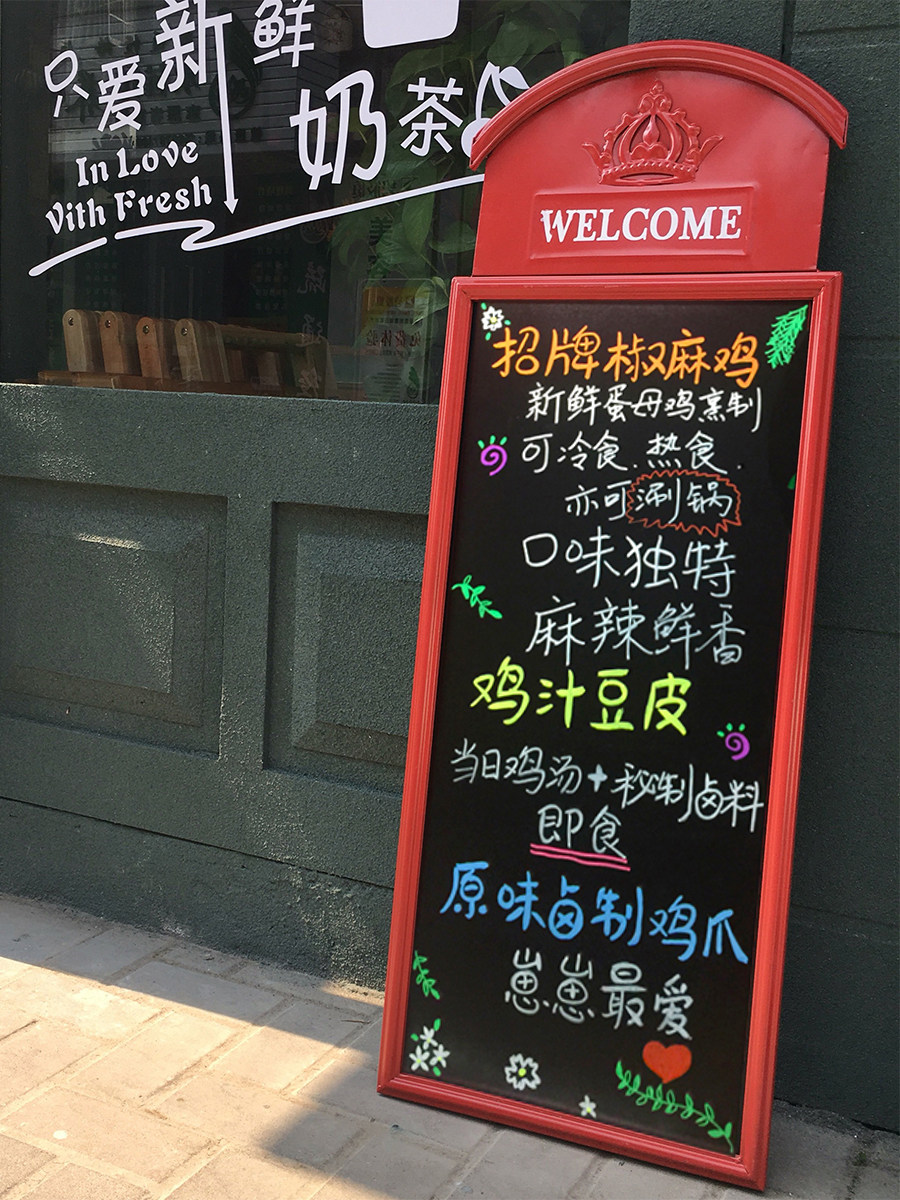 只爱新鲜
奶茶
In Love
With Fresh
免费体验
WELCOME
招牌椒麻鸡
新鲜蛋母鸡烹制
可冷食.热食.
亦可涮锅
口味独特
麻辣鲜香
鸡汁豆皮
当日鸡汤+秘制卤料
即食
原味卤制鸡爪
崽崽最爱